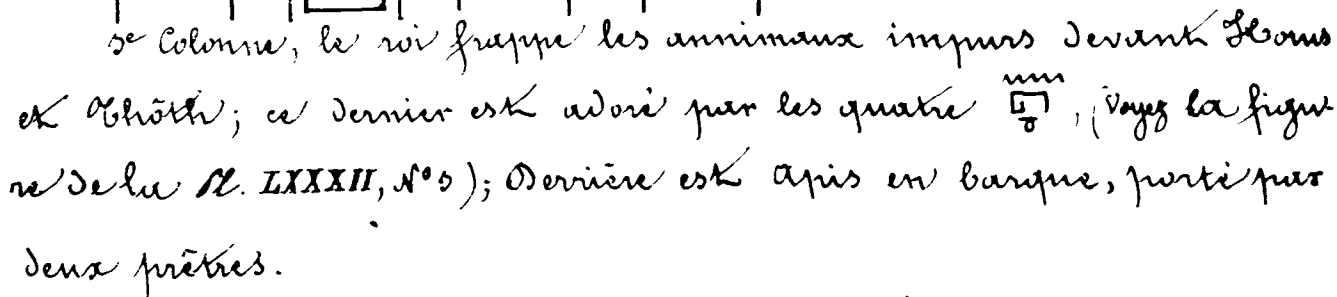 3e Colonne, le roi frappe les annimaux impurs devant Horus
et Thôth; ce dernier est adoré par les quatre , (voyez la figu-
re de la Pl. LXXXII, N° 3); Derrière est Apis en barque, porté par
deux prêtres.